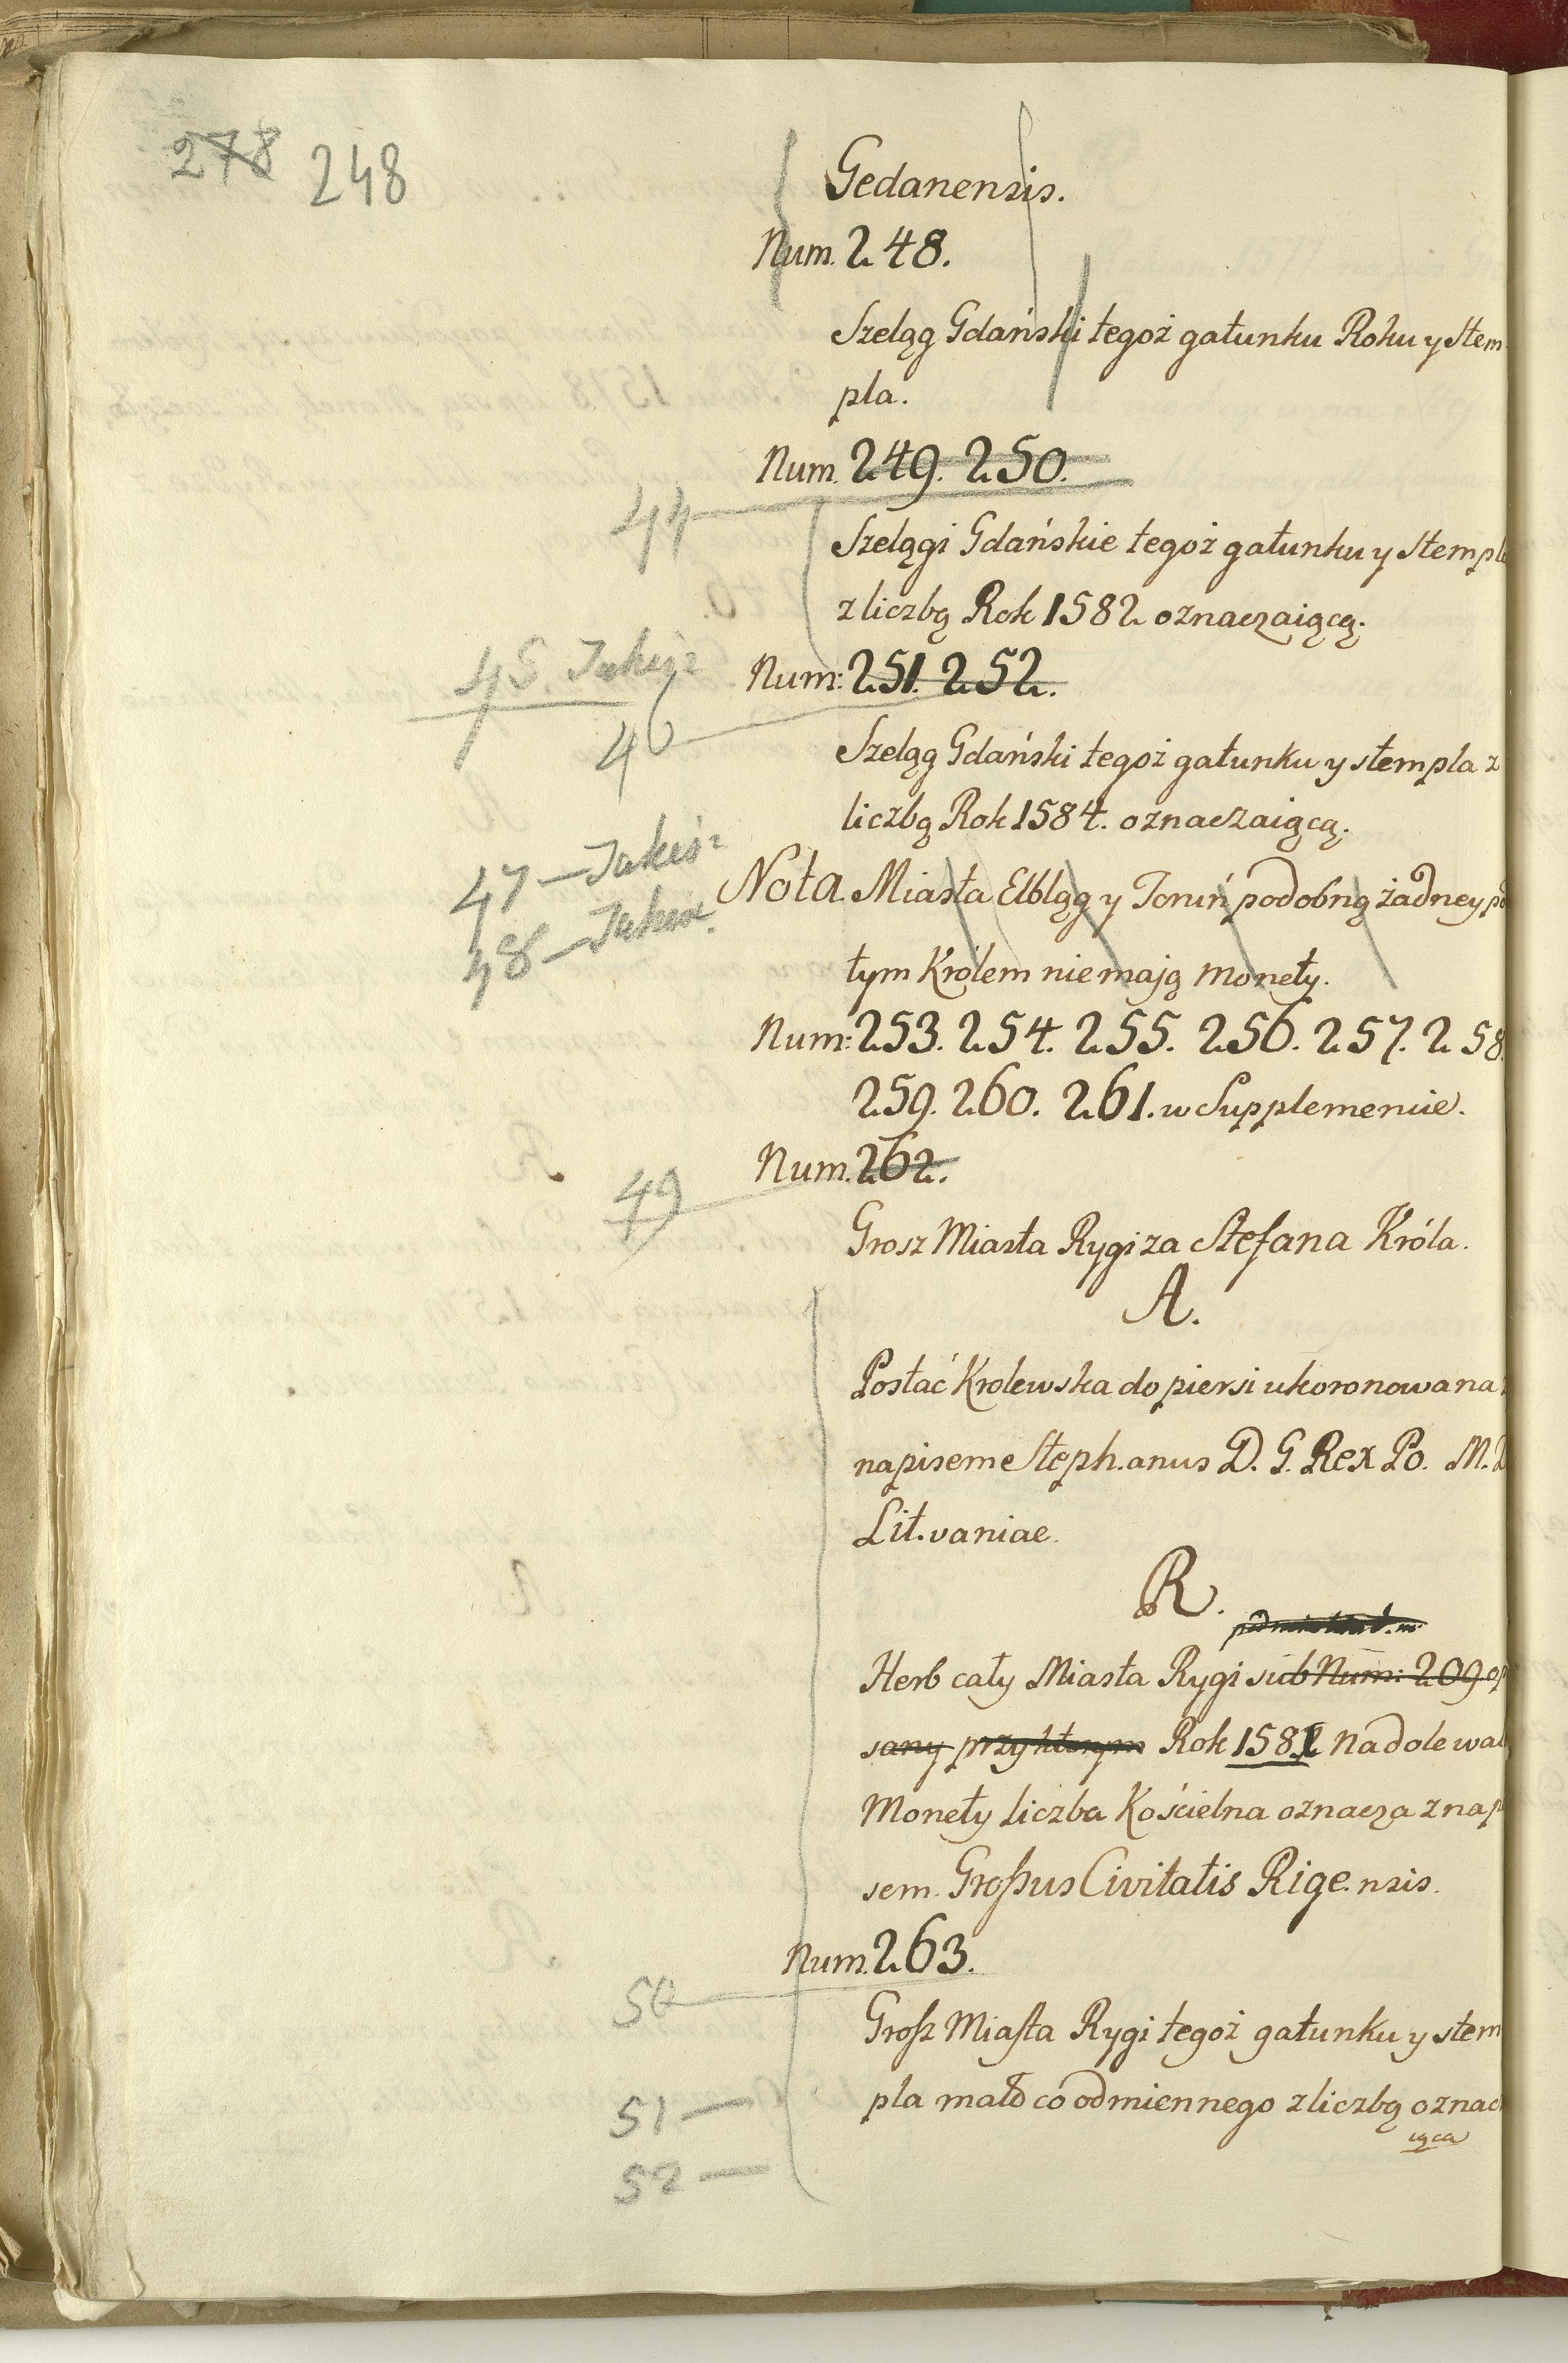 278 248
Gedanensis.
Num. 248.
Szeląg Gdański tegoż gatunku Roku y Stem
pla.
Num. 249. 250.
44
Szelągi Gdańskie tegoż gatunku y Stempl
z liczbą Rok 1582 oznaczaiącą.
45.
Num: 251. 252.
46
Szeląg Gdański tegoż gatunku y stempla z
liczbą Rok 1584. oznaczaiącą.
47 –
Nota. Miasta Elbląg y Toruń podobną żadney po
48 –
tym Królem nie mają Monety.
Num: 253. 254. 255. 256. 257. 258.
259. 260. 261. w Supplemencie.
Num. 262.
49
Grosz Miasta Rygi za Stefana Króla.
A.
Postać Krolewska do piersi ukoronowana
napisem Steph.anus D. G. Rex Po. M. D
Lit.vaniae.
R.
Herb cały Miasta Rygi sub Num: 209 op
sany przy ktorym Rok 1581 na dole
Monety liczba Kościelna oznacza z nap
sem. Großus Civitatis Rige.nsis.
Num. 263.
50
Grosz Miasta Rygi tegoż gatunku y stem
pla mało co odmiennego z liczbą oznac
51 –
iąca
52 –